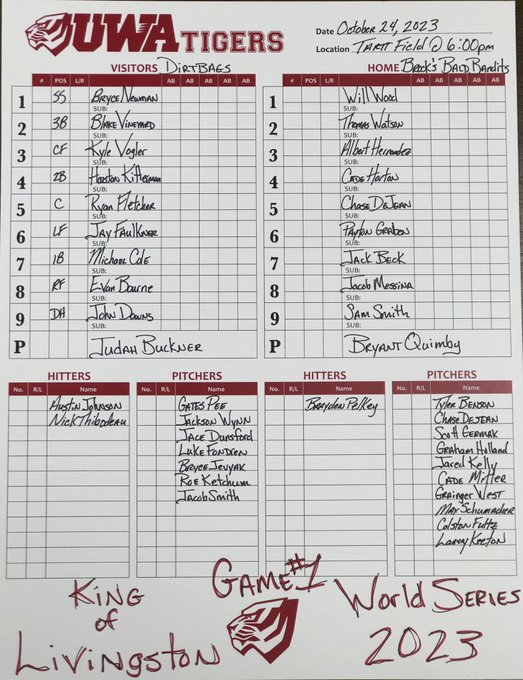 UWA TIGERS
Date October 24, 2023
Location Tartt Field @ 6:00pm
VISITORS DirtBags
# POS L/R AB AB AB AB AB
1 SS Bryce Newman
SUB:
2 3B Blake Vineyard
SUB:
3 CF Kyle Vogler
SUB:
4 2B Houston Kitterman
SUB:
5 C Ryan Fletcher
SUB:
6 LF Jay Faulkner
SUB:
7 1B Michael Cole
SUB:
8 RF Evan Bourne
SUB:
9 DH John Downs
SUB:
P Judah Buckner
HOME Beck's Bald Bandits
# POS L/R AB AB AB AB AB
1 Will Wood
SUB:
2 Thomas Watson
SUB:
3 Albert Hernandez
SUB:
4 Cade Horton
SUB:
5 Chase DeJean
SUB:
6 Payton Graben
SUB:
7 Jack Beck
SUB:
8 Jacob Messina
SUB:
9 Sam Smith
SUB:
P Bryant Quimby
HITTERS
No. R/L Name
Austin Johnson
Nick Thibodeau
PITCHERS
No. R/L Name
Gates Pee
Jackson Wynn
Jace Dunsford
Luke Fondren
Bryce
Roe Ketchum
Jacob Smith
HITTERS
No. R/L Name
Brayden Pelkey
PITCHERS
No. R/L Name
Tyler Benson
Chase DeJean
Scott Germak
Graham Holland
Jared Kelly
Cade Miller
Grainger West
Max Schumacher
Colston
Larey Keeton
King
of
Livingston
Game #1
World Series
2023